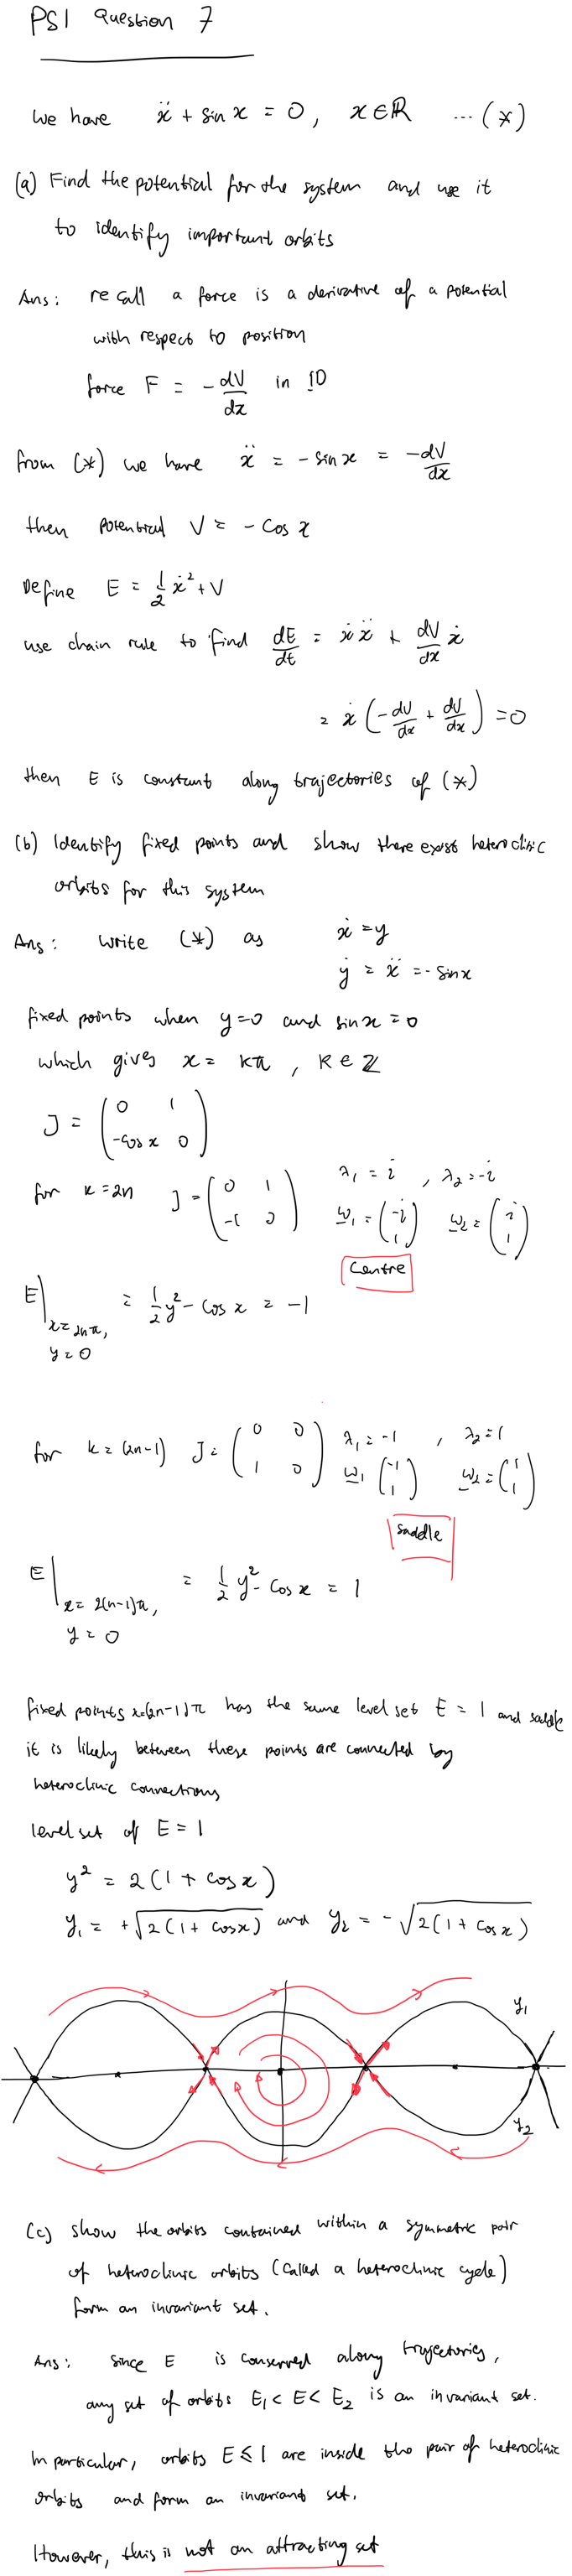 PS1 Question 7
we have ẍ + sin x = 0, x ∈ ℝ ... (*)
(a) Find the potential for the system and use it
to identify important orbits
Ans: recall a force is a derivative of a potential
with respect to position
force F = - dV/dx in 1D
from (*) we have ẍ = - sin x = -dV/dx
then potential V = - cos x
Define E = 1/2 ẋ² + V
use chain rule to find dE/dt = ẋ ẍ + dV/dx ẋ
= ẋ ( -dV/dx + dV/dx ) = 0
then E is constant along trajectories of (*)
(b) Identify fixed points and show there exist heteroclinic
orbits for this system
Ans: write (*) as ẋ = y
ẏ = ẍ = - sin x
fixed points when y=0 and sin x = 0
which gives x = kπ, k ∈ ℤ
J = ( 0 1 ; -cos x 0 )
for k = 2n J = ( 0 1 ; -1 0 ) λ₁ = i, λ₂ = -i
w₁ = ( -i ; 1 ) w₂ = ( i ; 1 )
Centre
E | x = 2nπ, y = 0 = 1/2 y² - cos x = -1
for k = (2n-1) J = ( 0 0 ; 1 0 ) λ₁ = -1, λ₂ = 1
w₁ ( -1 ; 1 ) w₂ = ( 1 ; 1 )
Saddle
E | x = 2(n-1)π, y = 0 = 1/2 y² - cos x = 1
fixed points x=(2n-1)π has the same level set E = 1 and saddle
it is likely between these points are connected by
heteroclinic connections
level set of E = 1
y² = 2(1 + cos x)
y₁ = +√2(1 + cos x) and y₂ = -√2(1 + cos x)
y₁
y₂
(c) show the orbits contained within a symmetric pair
of heteroclinic orbits (called a heteroclinic cycle)
form an invariant set.
Ans: since E is conserved along trajectories,
any set of orbits E₁ < E < E₂ is an invariant set.
In particular, orbits E ≤ 1 are inside the pair of heteroclinic
orbits and form an invariant set.
However, this is not an attracting set